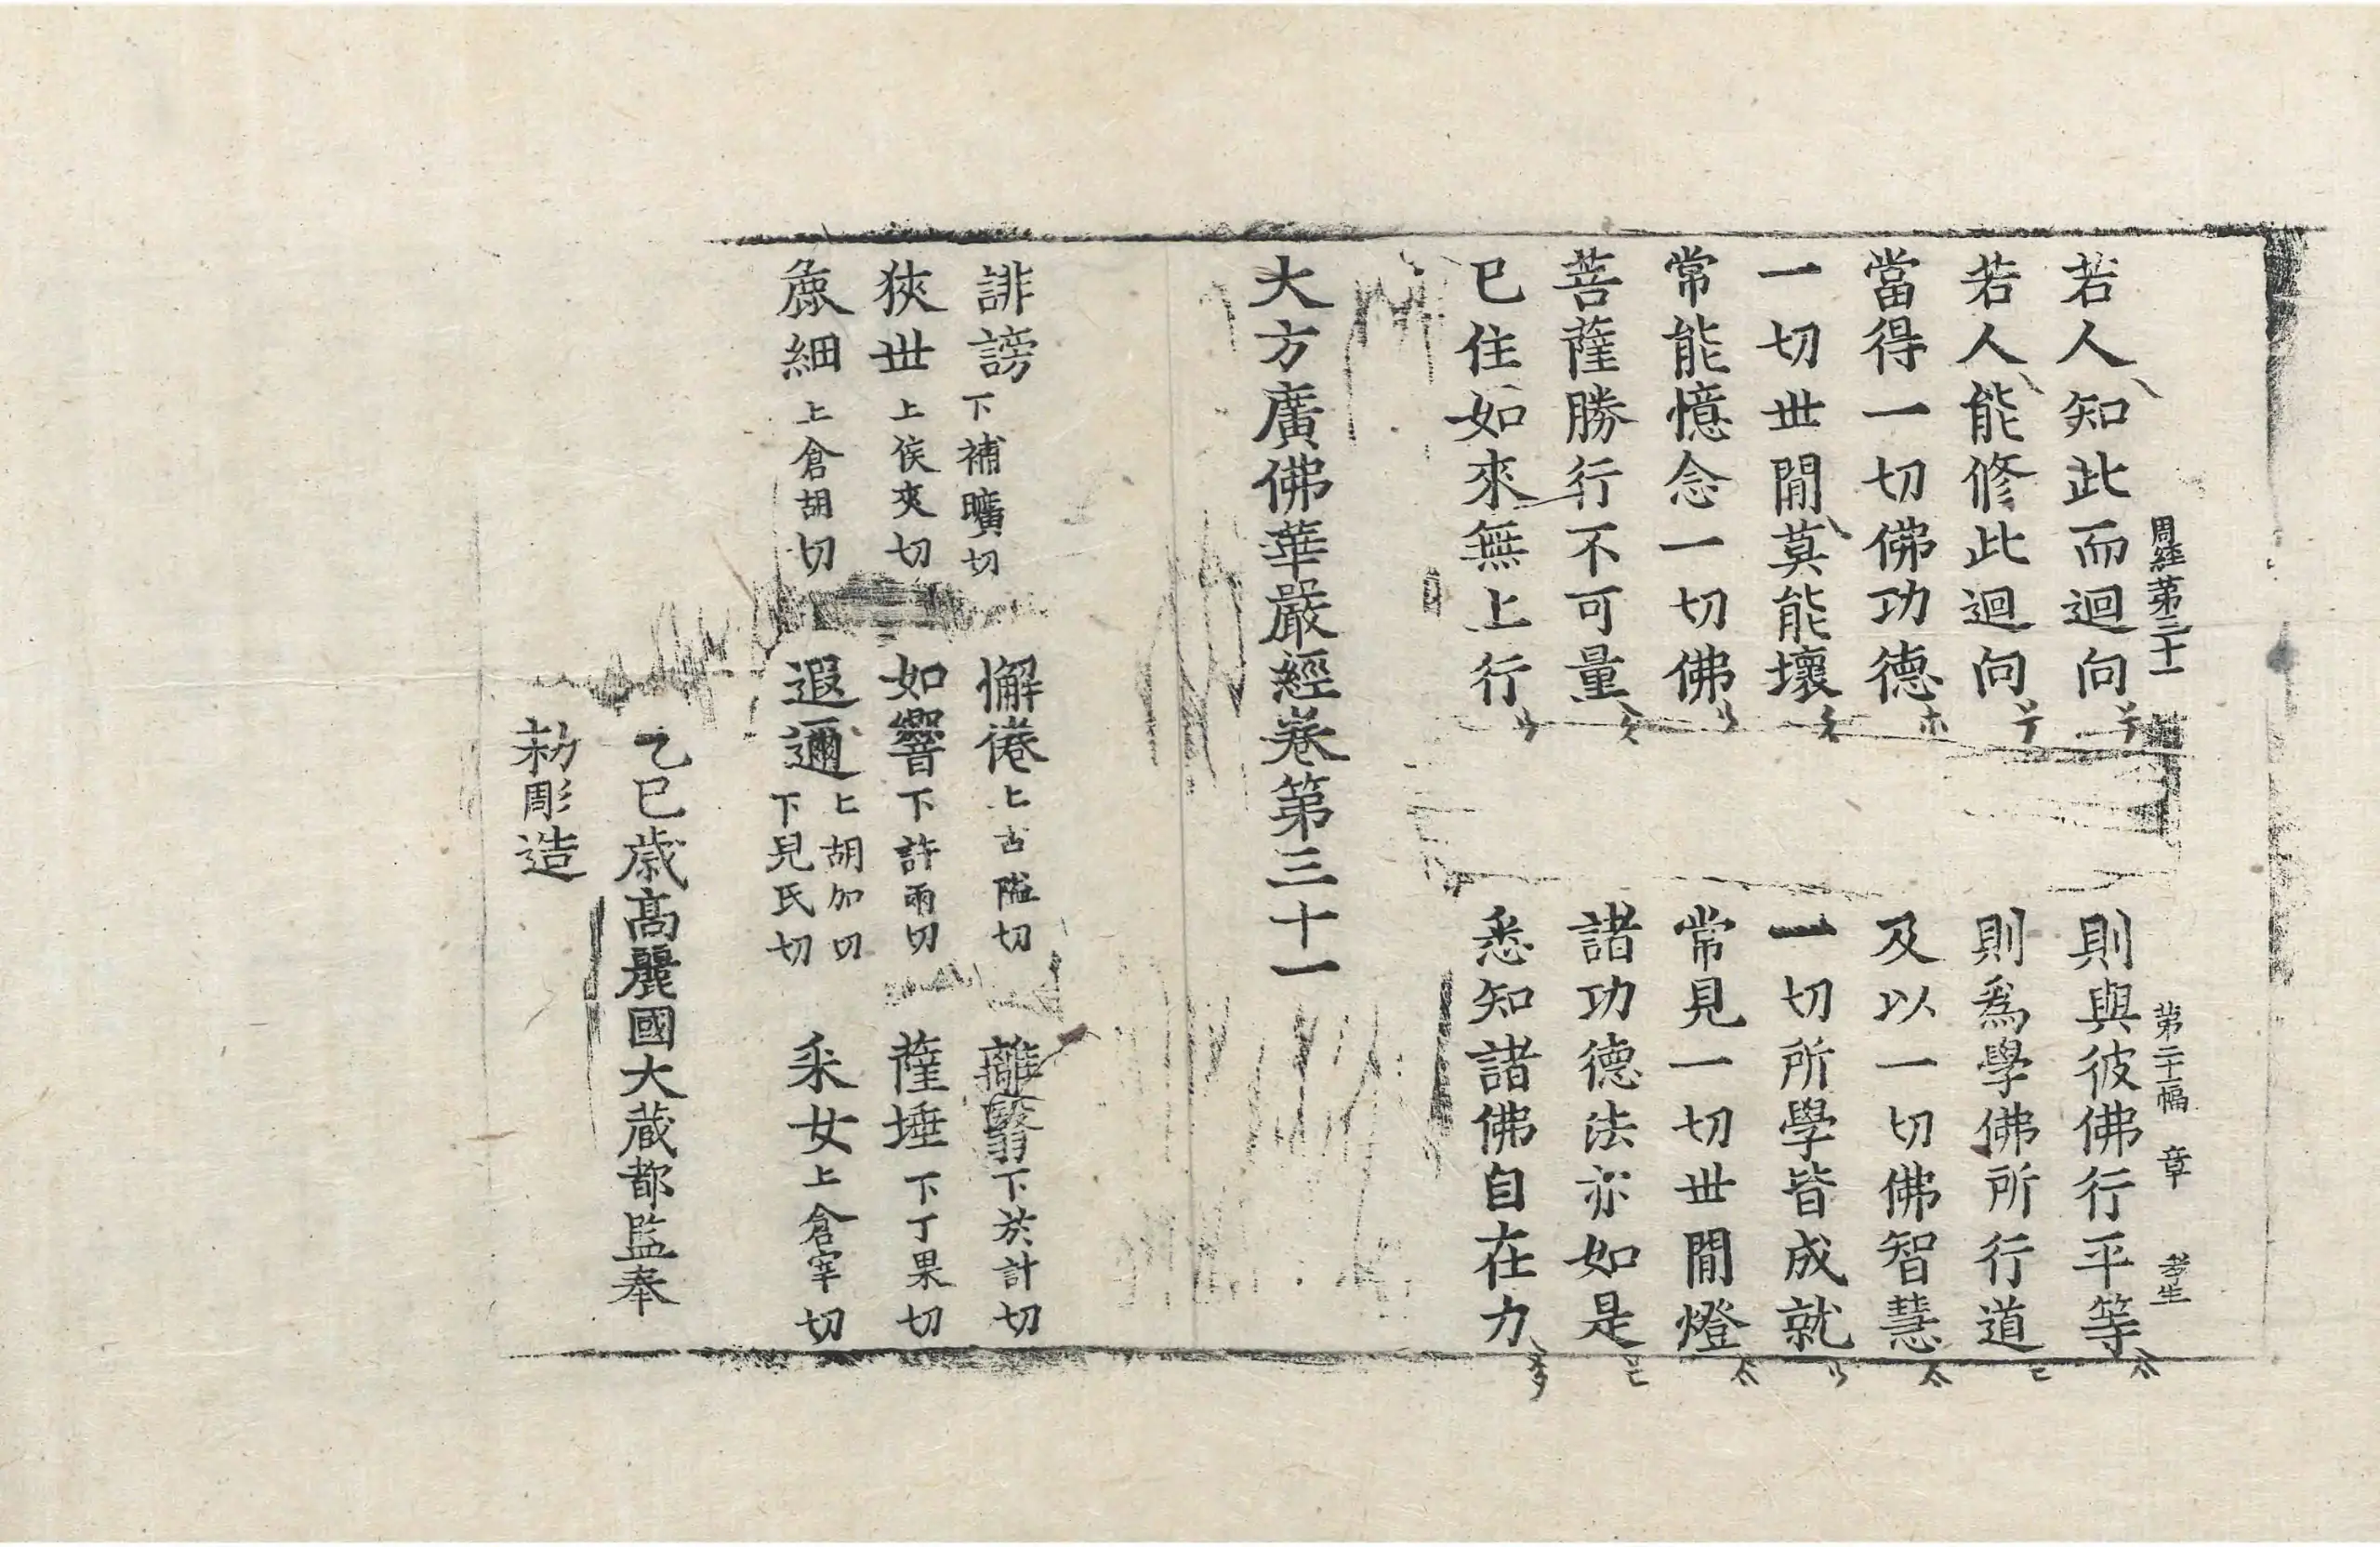 周経第三十一 第二十二幅 章 孝生
若人知此而迴向 則與彼佛行平等
若人能修此迴向 則爲學佛所行道
當得一切佛功德 及以一切佛智慧
一切世閒莫能壞 一切所學皆成就
常能憶念一切佛 常見一切世閒燈
菩薩勝行不可量 諸功德法亦如是
已住如來無上行 悉知諸佛自在力
大方廣佛華嚴經卷第三十一
誹謗下補曠切 懈惓上古隘切 離翳下於計切
狹世上侯夾切 如響下許兩切 薩埵下丁果切
麁細上倉胡切 遐邇上胡加切下兒氏切 采女上倉宰切
乙巳歲高麗國大藏都監奉
勅彫造